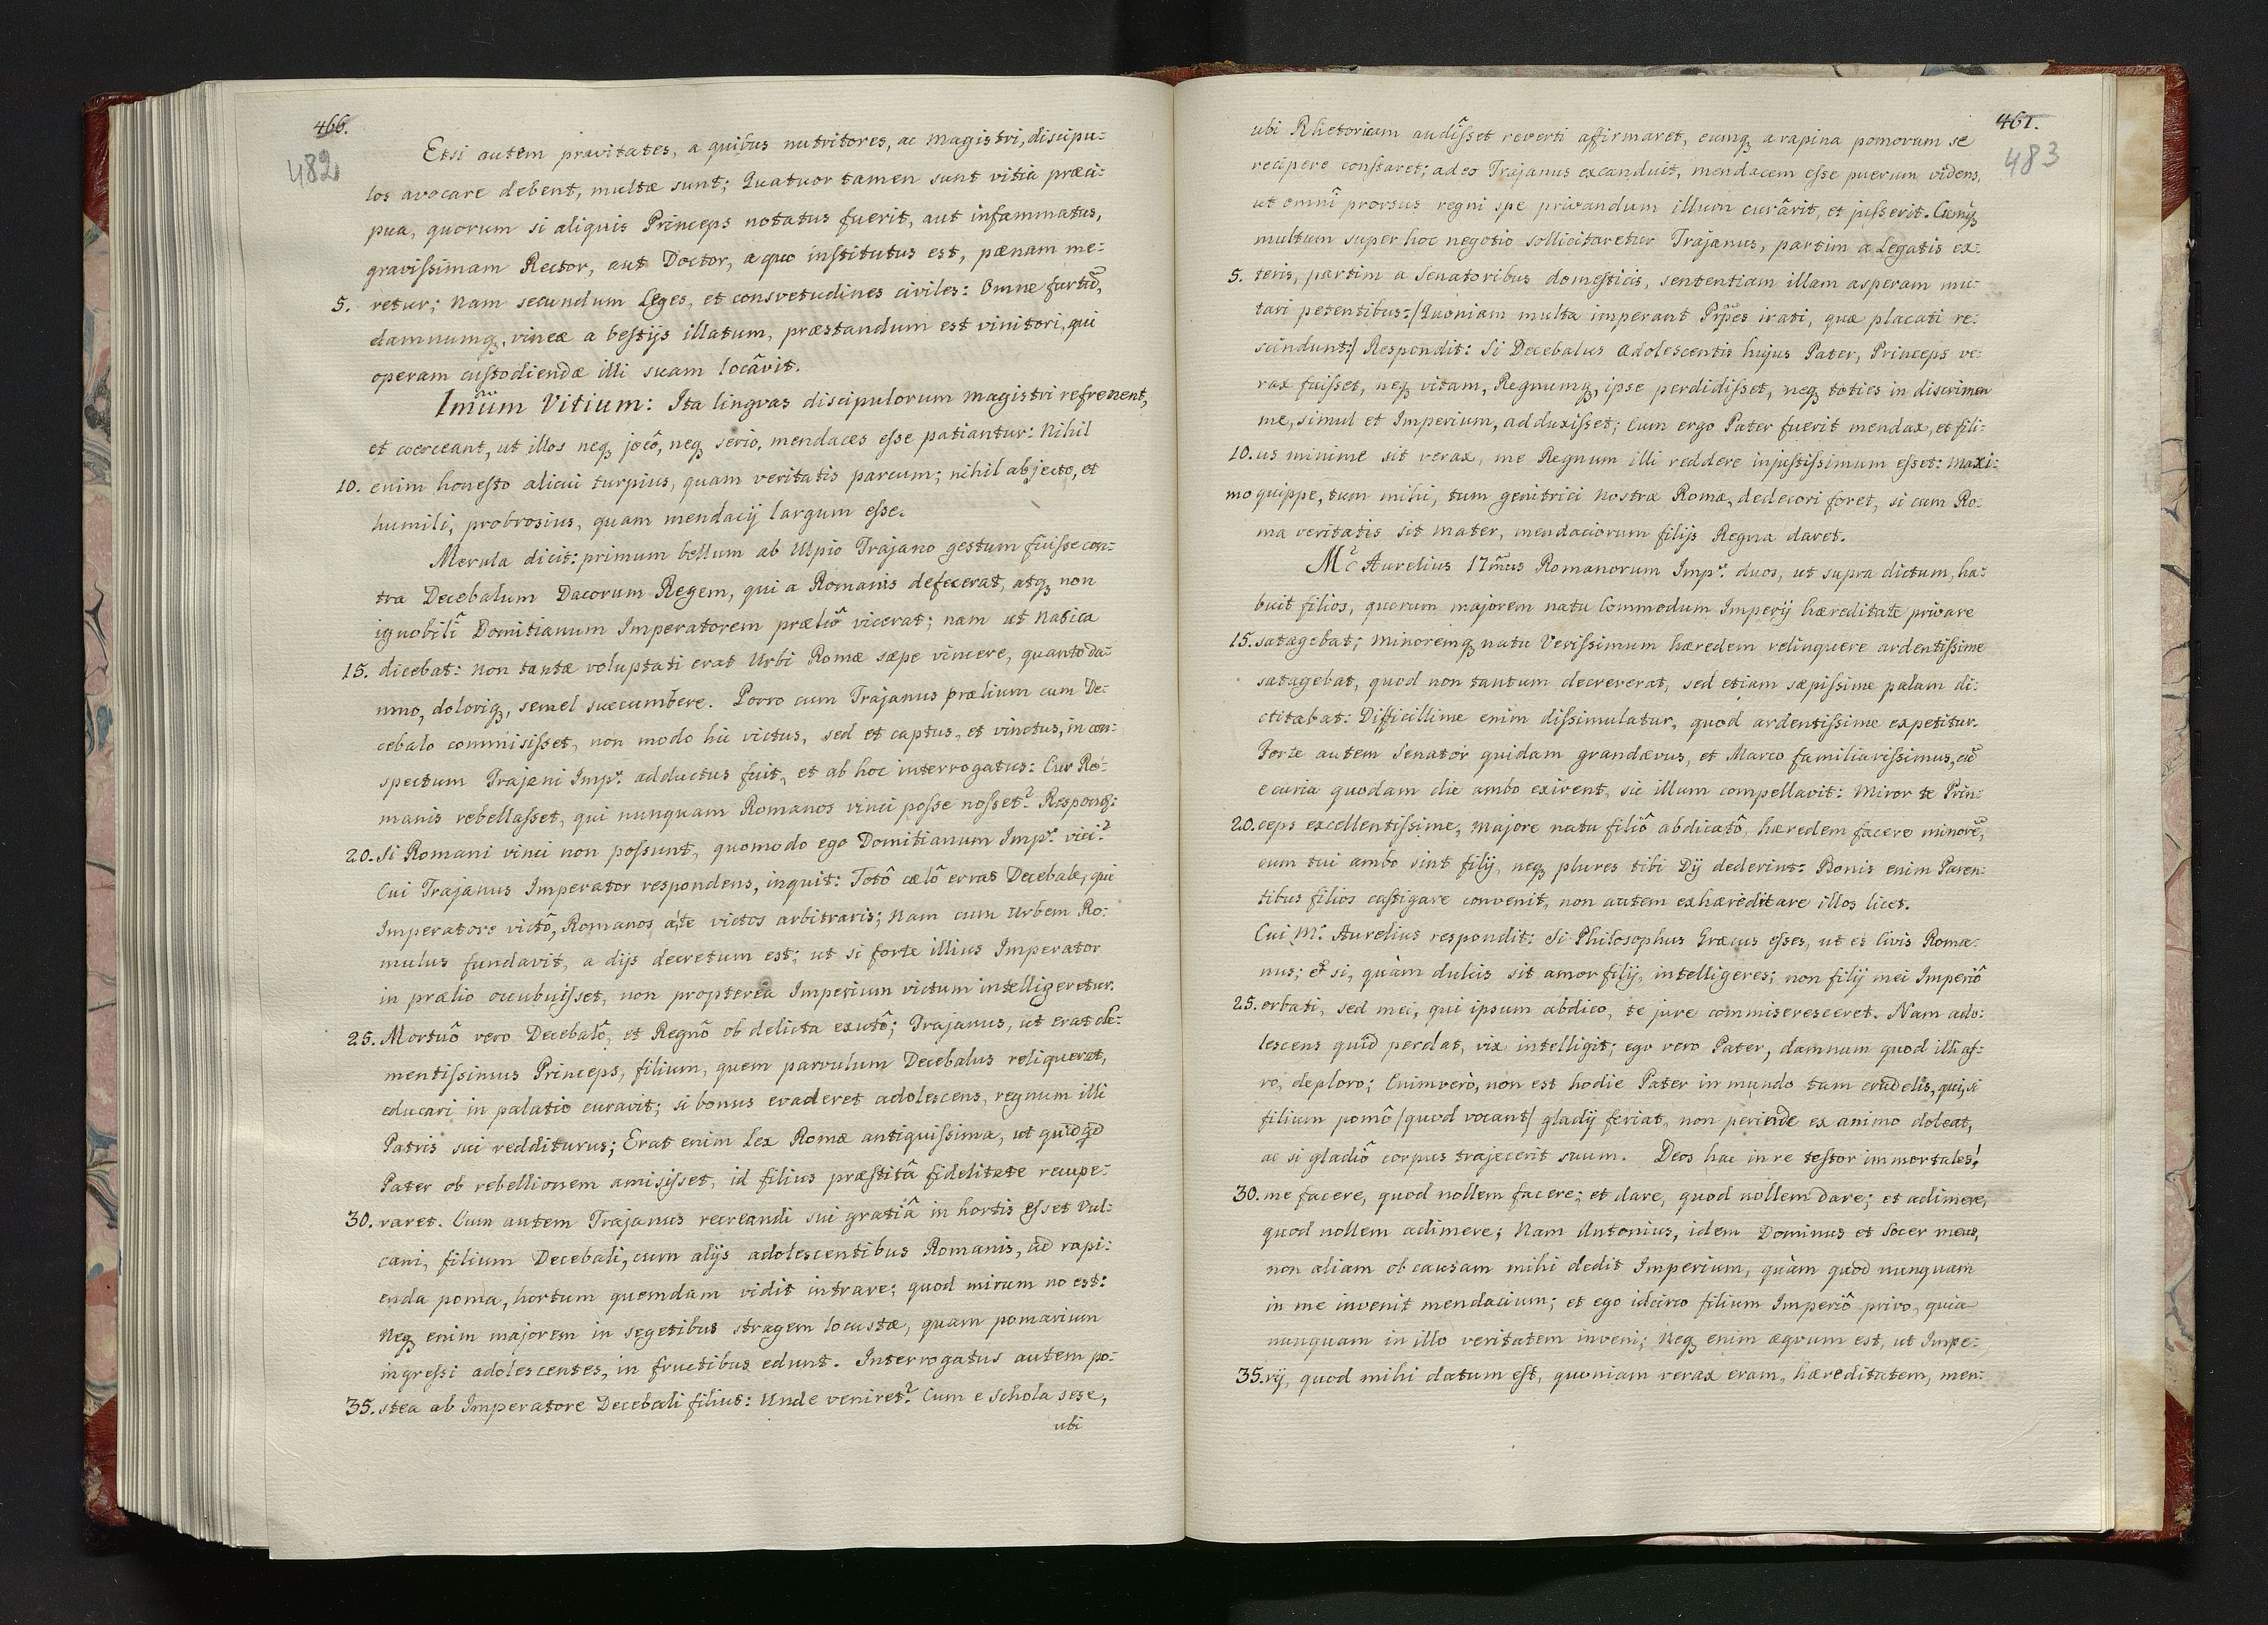 466.
482
Etsi autem pravitates, a quibus nutritores, ac Magistri, discipu:
los avocare debent, multæ sunt; Quatuor tamen sunt vitia præci:
pua, quorum si aliquis Princeps notatus fuerit, aut infammatus,
gravissimam Rector, aut Doctor, a quo institutus est, pænam me:
5. retur; Nam secundum Leges, et consvetudines civiles: Omne furtũ,
damnumq, vineæ a bestijs illatum, præstandum est vinitori, qui
operam custodiendæ illi suam locâvit.
Imũm Vitium: Ita lingvas discipulorum Magistri refrenent,
et coerceant, ut illos neq jocô, neq serio, mendaces esse patiantur: Nihil
10. enim honesto alicui turpius, quam veritatis parcum; nihil abjecto, et
humili, probrosius, quam mendacij largum esse.
Merula dicit: primum bellum ab Ulpio Trajano gestum fuisse con:
tra Decebalum Dacorum Regem, qui a Romanis defecerat, atq non
ignobilî Domitianum Imperatorem præliô vicerat; nam ut Nasica
15. dicebat: Non tantæ voluptati erat Urbi Romæ sæpe vincere, quanto da:
mno, doloriq, semel succumbere. Porro cum Trajanus prælium cum De:
cebalo commisisset, non modo hic victus, sed et captus, et vinctus, in con:
spectum Trajani Impr. adductus fuit, et ab hoc interrogatus: Cur Ro:
manis rebellasset, qui nunquam Romanos vinci posse nosset? Respond:
20. Si Romani vinci non possunt, quomodo ego Domitianum Impr. vici?
Cui Trajanus Imperator respondens, inquit: Totô cælô erras Decebale, qui
Imperatore victô, Romanos a te victos arbitraris; Nam cum Urbem Ro:
mulus fundavit, a dijs decretum est; ut si forte illius Imperator
in prælio occubuisset, non propterea Imperium victum intelligeretur.
25. Mortuô vero Decebalô, et Regnô ob delicta exutô; Trajanus, ut erat cle:
mentissimus Princeps, filium, quem parvulum Decebalus reliquerat,
educari in palatio curavit; si bonus evaderet adolescens, regnum illi
Patris sui redditurus; Erat enim Lex Romæ antiquissima, ut quidqd
Pater ob rebellionem amisisset, id filius præstitâ fidelitate recupe:
30. raret. Cum autem Trajanus recreandi sui gratiâ in hortis esset Vul:
cani, filium Decebali, cum alijs adolescentibus Romanis, ad rapi:
enda poma, hortum quemdam vidit intrare; quod mirum no est:
Neq enim majorem in segetibus stragem locustæ, quam pomarium
ingressi adolescentes, in fructibus edunt. Interrogatus autem po:
35. stea ab Imperatore Decebali filius: Unde veniret? Cum e Schola sese,
ubi
461.
483
ubi Rhetoricam audîsset reverti affirmaret, eumq a rapina pomorum se
recipere constaret; adeo Trajanus excanduit, mendacem esse puerum videns,
ut omnî prorsus regni spe privandum illum curârit, et jusserit. Cumq
multum super hoc negotio sollicitaretur Trajanus, partim a Legatis ex:
5. teris, partim a Senatoribus domesticis, sententiam illam asperam mu:
tari petentibus:/ Quoniam multa imperant Prpes irati, quæ placati re:
scindunt:/ Respondit: Si Decebalus Adolescentis hujus Pater, Princeps ve:
rax fuisset, neq vitam, Regnumq, ipse perdidisset, neq toties in discrimen
me, simul et Imperium, adduxisset; Cum ergo Pater fuerit mendax, et fili:
10. us minime sit verax, me Regnum illi reddere injustissimum esset: Maxi:
mo quippe, tum mihi, tum genitrici nostræ Romæ, dedecori foret, si cum Ro:
ma veritatis sit mater, mendaciorum filijs Regna daret.
Mc Aurelius 17mus Romanorum Impr. duos, ut supra dictum, ha:
buit filios, quorum majorem natu Commodum Imperij hæreditate privare
15. satagebat; Minoremq natu Verissimum hæredem relinquere ardentissime
satagebat, quod non tantum decreverat, sed etiam sæpissime palam di:
ctitabat: Difficillime enim dissimulatur, quod ardentissime expetitur.
Forte autem Senator quidam grandævus, et Marco familiarissimus, cũ
e curia quodam die ambo exirent, sic illum compellavit: Miror te Prin:
20. ceps excellentissime, Majore natu filiô abdicatô, hæredem facere minorẽ,
cum tui ambo sint filij, neq plures tibi Dij dederint: Bonis enim Paren:
tibus filios castigare convenit, non autem exhæreditare illos licet.
Cui Mc Aurelius respondit: Si Philosophus Græcus esses, ut es Civis Roma:
nus; et si, quàm dulcis sit amor filij, intelligeres; non filij mei Imperiô
25. orbati, sed mei, qui ipsum abdico, te jure commiseresceret. Nam ado:
lescens quid perdat, vix intelligit; ego vero Pater, damnum quod illi af:
ro, deploro; Enimverò, non est hodie Pater in mundo tam crudelis, qui, si
filium pomô /quod vocant/ gladij feriat, non perinde ex animo doleat,
ac si gladiô corpus trajecerit suum. Deos hac in re testor immortales!
30. me facere, quod nollem facere; et dare, quod nollem dare; et adimere,
quod nollem adimere; Nam Antonius, idem Dominus et Socer meus,
non aliam ob causam mihi dedit Imperium, quàm quod nunquam
in me invenit mendacium; et ego idcirco filium Imperiô privo, quia
nunquam in illo veritatem inveni; Neq enim æqvum est, ut Impe:
35. rij, quod mihi datum est, quoniam verax eram, hæreditatem, men: